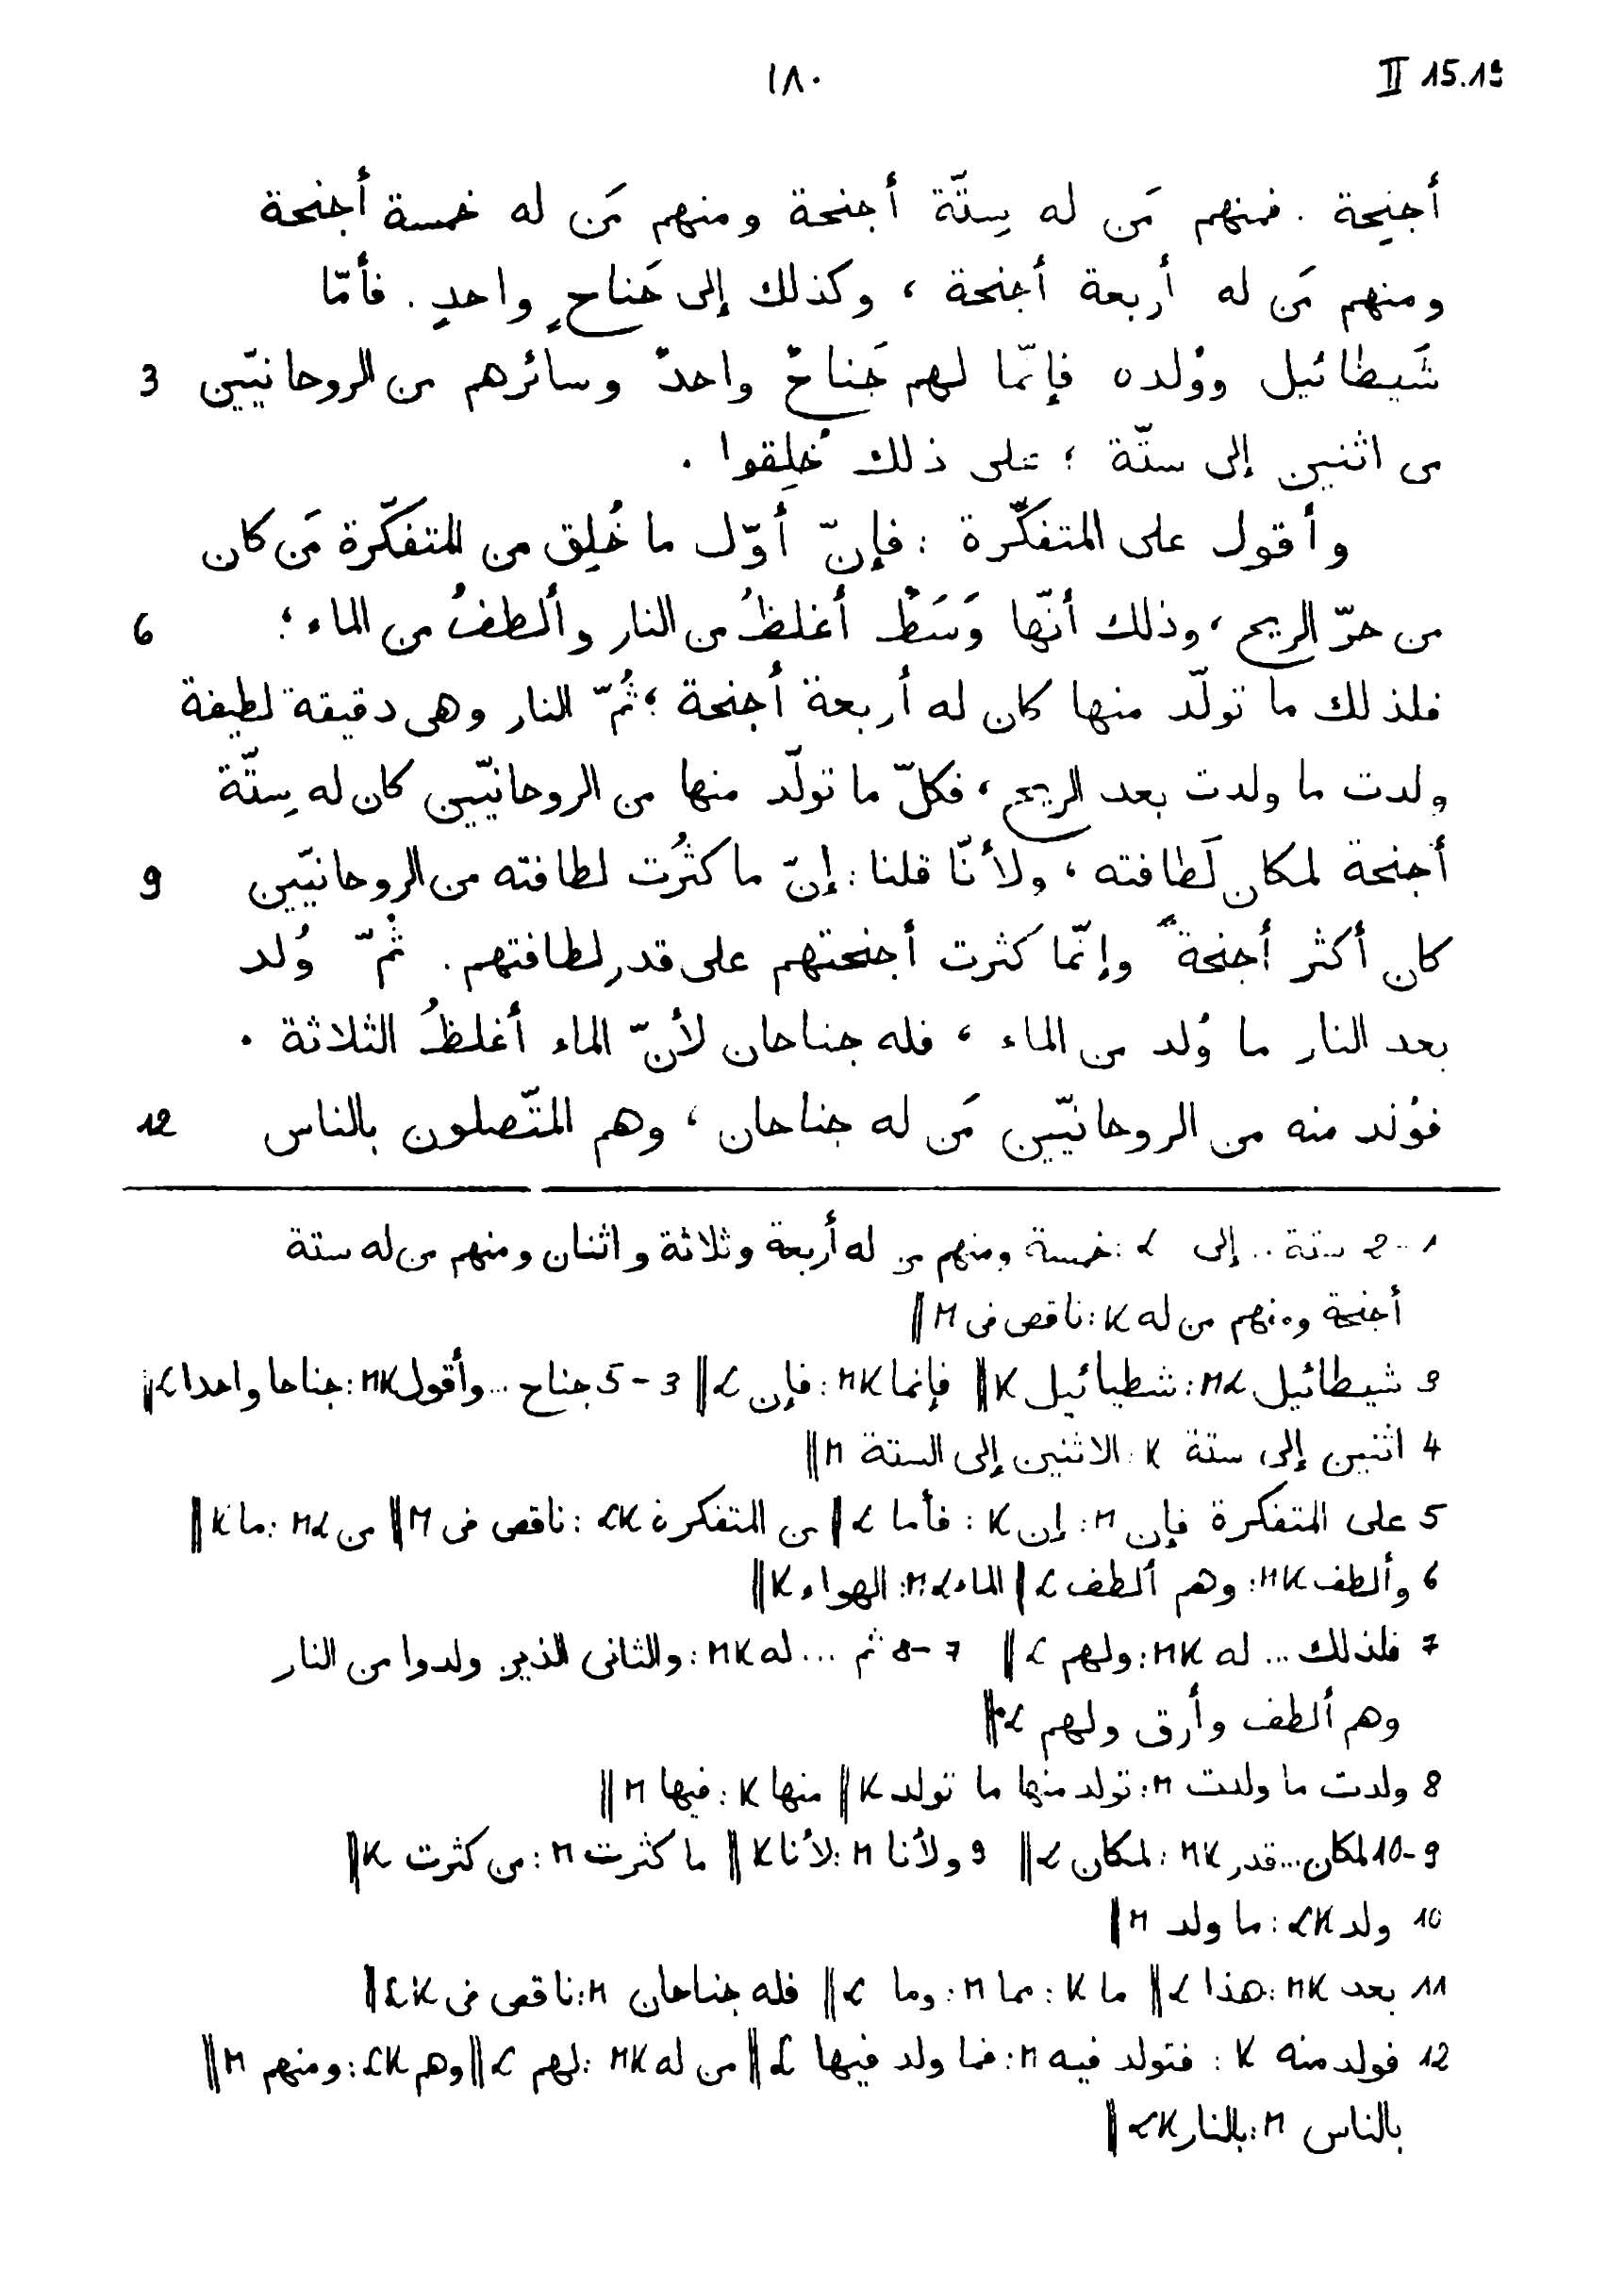 ١٨٠ II 15.1
أجنِحة . فمنهم مَن له سِتّة أجنحة ومنهم مَن له خمسة أجنحة
ومنهم مَن له أربعة أجنحة ، وكذلك إلى جَناحٍ واحدٍ . فأمّا
شَيطائيل ووُلده فإنّما لهم جَناحٌ واحدٌ وسائرهم من الروحانيّين 3
من اثنين إلى ستّة ؛ على ذلك خُلِقوا .
وأقول على المتفكّرة : فإنّ أوّل ما خُلِق من المتفكّرة مَن كان
من حرّ الريح ، وذلك أنّها وَسَطٌ أغلظُ من النار وألطفُ من الماء ؛ 6
فلذلك ما تولّد منها كان له أربعة أجنحة ؛ ثُمّ النار وهى دقيقة لطيفة
ولدت ما ولدت بعد الريح ، فكلّ ما تولّد منها من الروحانيّين كان له سِتّة
أجنحة لمكان لَطافته ، ولأنّا قلنا : إنّ ما كثُرت لطافته من الروحانيّين 9
كان أكثر أجنحةً وإنّما كثرت أجنحتهم على قدر لطافتهم . ثُمّ وُلد
بعد النار ما وُلد من الماء ، فله جناحان لأنّ الماء أغلظُ الثلاثة .
فوُلد منه من الروحانيّين مَن له جناحان ، وهم المتّصلون بالناس 12
1-2 ستة .. إلى L : خمسة ومنهم من له أربعة وثلاثة واثنان ومنهم من له ستة
أجنحة ومنهم من له K : ناقص فى M ||
3 شيطائيل ML : شطيائيل K || فإنما MK : فإن L || 3-5 جناح ... وأقول MK : جناحا واحدا L ||
4 اثنين إلى ستة K : الاثنين إلى الستة M ||
5 على المتفكرة فإن M : إن K : فأما L || من المتفكرة LK : ناقص فى M || من ML : ما K ||
6 وألطف MK : وهم ألطف L || الماء ML : الهواء K ||
7 فلذلك ... له MK : ولهم L || 7-8 ثم ... له MK : والثانى الذين ولدوا من النار
وهم ألطف وأرق ولهم L ||
8 ولدت ما ولدت M : تولد منها ما تولد K || منها K : فيها M ||
9-10 لمكان ... قدر MK : لمكان L || 9 ولأنا M : لأنا K || ما كثرت M : من كثرت K ||
10 ولد LK : ما ولد M ||
11 بعد MK : هذا L || ما K : مما M : وما L || فله جناحان M : ناقص فى LK ||
12 فولد منه K : فتولد فيه M : فما ولد فيها L || من له MK : لهم L || وهم LK : ومنهم M ||
بالناس M : بالنار LK ||